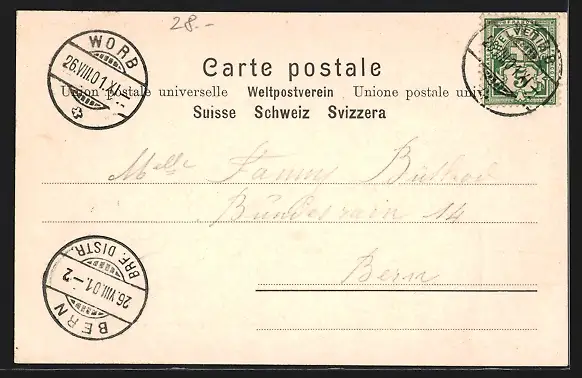 28.-
WORB
26.VIII.01.XI-
HELVETIA
Carte postale
Union postale universelle Weltpostverein Unione postale uni
Suisse Schweiz Svizzera
Melle Fanny
Bundesrain 14
Bern
BRF. DISTR.
26.VIII.01.-2
BERN